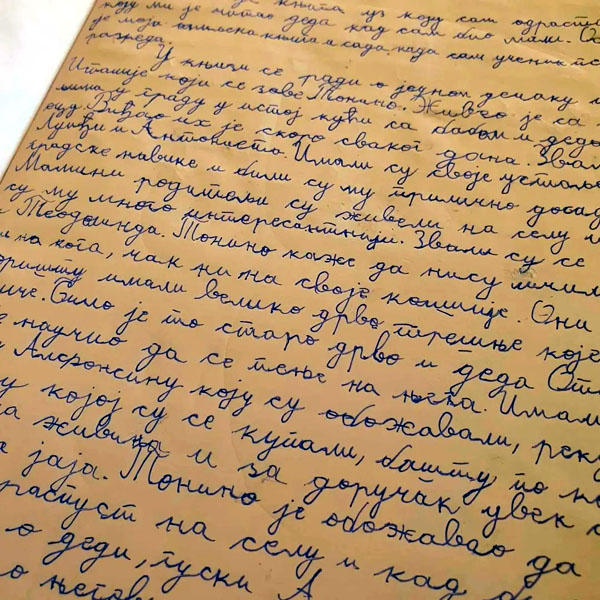 књига уз коју сам одраста
коју ми је читао деда кад сам био мали. Ос
је моја омиљена књига и сада, када сам ученик
разреда.
У књизи се ради о једном дечаку
Италије који се зове Тонино. Живео је са
у граду у истој кући са бабом и дедо
их је скоро сваког дана. Звал
и Антониета. Имали су своје устаље
градске навике и били су му прилично досад
Мамини родитељи су живели на селу и
су му много интересантнији. Звали су се
и Теодолинда. Тонино каже да нису личил
ни на кога, чак ни на своје комшије. Они
имали велико дрво трешње које
Било је то старо дрво и деда
научио да се пење на њега. Имал
Алфонсину коју су обожавали, рек
у којој су се купали, башту
живина и за доручак увек
јаја. Тонино је обожавао да
распуст на селу и кад
о деди, гуски А
о његов